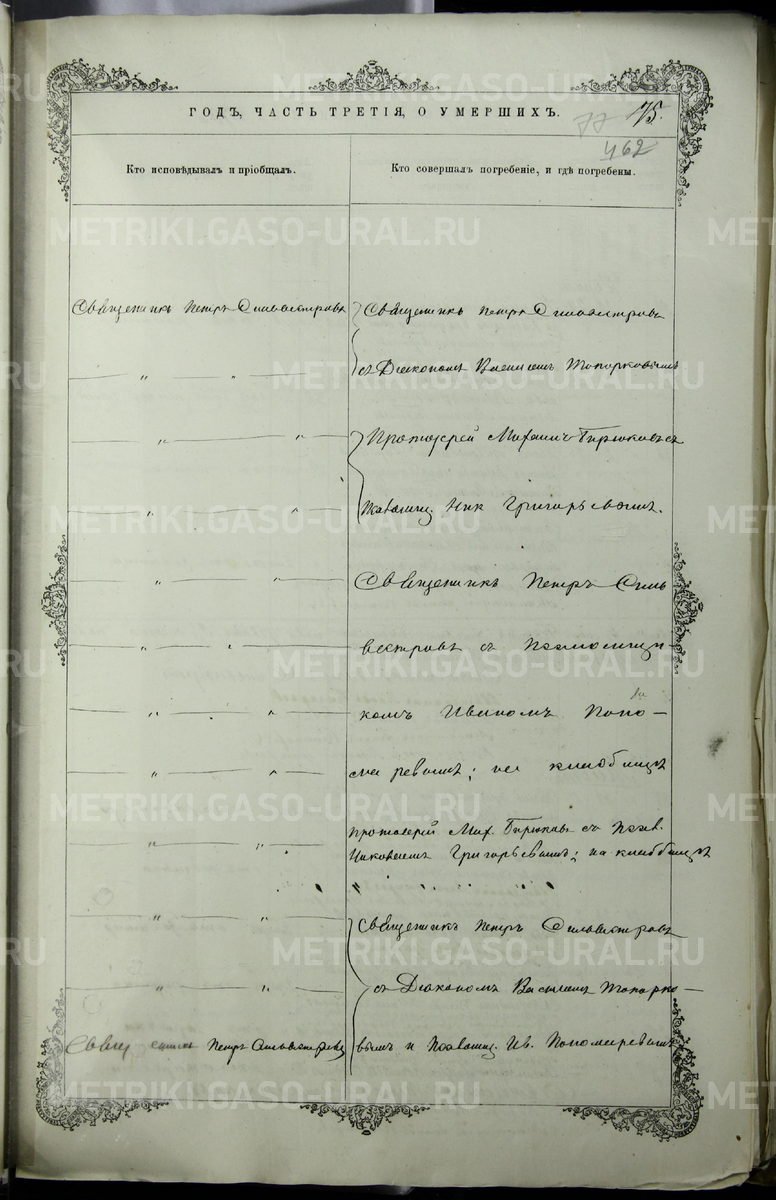 ГОДЪ, ЧАСТЬ ТРЕТІЯ, О УМЕРШИХЪ.
77 75.
462
Кто исповѣдывалъ и пріобщалъ.
Кто совершалъ погребеніе, и гдѣ погребены.
Священникъ Петръ Сильвестровъ
— „ — „ —
— „ — „ —
— „ — „ —
— „ — „ —
— „ — „ —
— „ — „ —
— „ — „ —
— „ — „ —
— „ — „ —
— „ — „ —
Священникъ Петръ Сильвестровъ
Священникъ Петръ Сильвестровъ
съ Діакономъ Василіемъ Топорковымъ
Протоіерей Михаилъ Бирюковъ съ
Псаломщ. Ник Григорьевымъ.
Священникъ Петръ Силь
вестровъ съ Псаломщи
комъ Иваномъ Поно-
маревымъ; на кладбищѣ
Протоіерей Мих. Бирюковъ съ Псал.
Григорьевымъ; на кладбищѣ
Священникъ Петръ Сильвестровъ
съ Діакономъ Василіемъ Топорко-
вымъ и Псаломщ. Ив. Пономаревымъ
METRIKI.GASO-URAL.RU